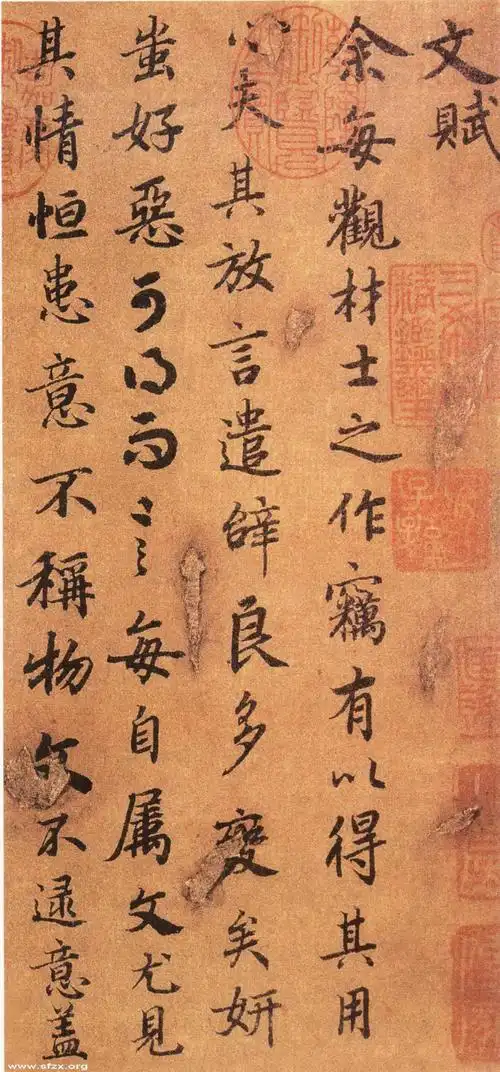 文賦
余每觀材士之作竊有以得其用
心夫其放言遣辭良多變矣妍
蚩好惡可得而言每自屬文尤見
其情恒患意不稱物文不逮意盖
三希堂精鑑璽
宜子孫
www.sfzx.org